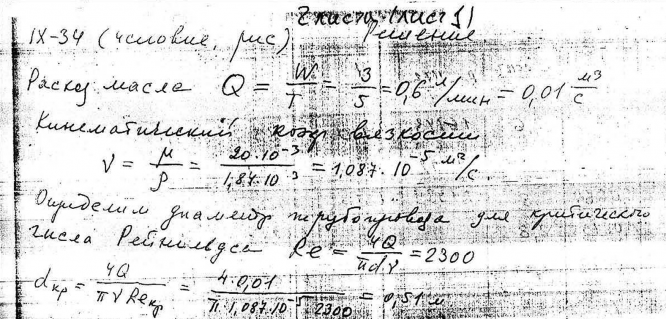 2 листа (лист 1)
IX-34 (условие, рис) Решение
Расход масла Q = W/T = 3/5 = 0,6 м³/мин = 0,01 м³/с
Кинематический коэф вязкости
ν = μ/ρ = 20·10⁻³/1,84·10³ = 1,087·10⁻⁵ м²/с.
Определим диаметр трубопровода для критического
числа Рейнольдса Re = 4Q/πdν = 2300
dкр = 4Q/πνReкр = 4·0,01/π·1,087·10⁻⁵·2300 = 0,51 м